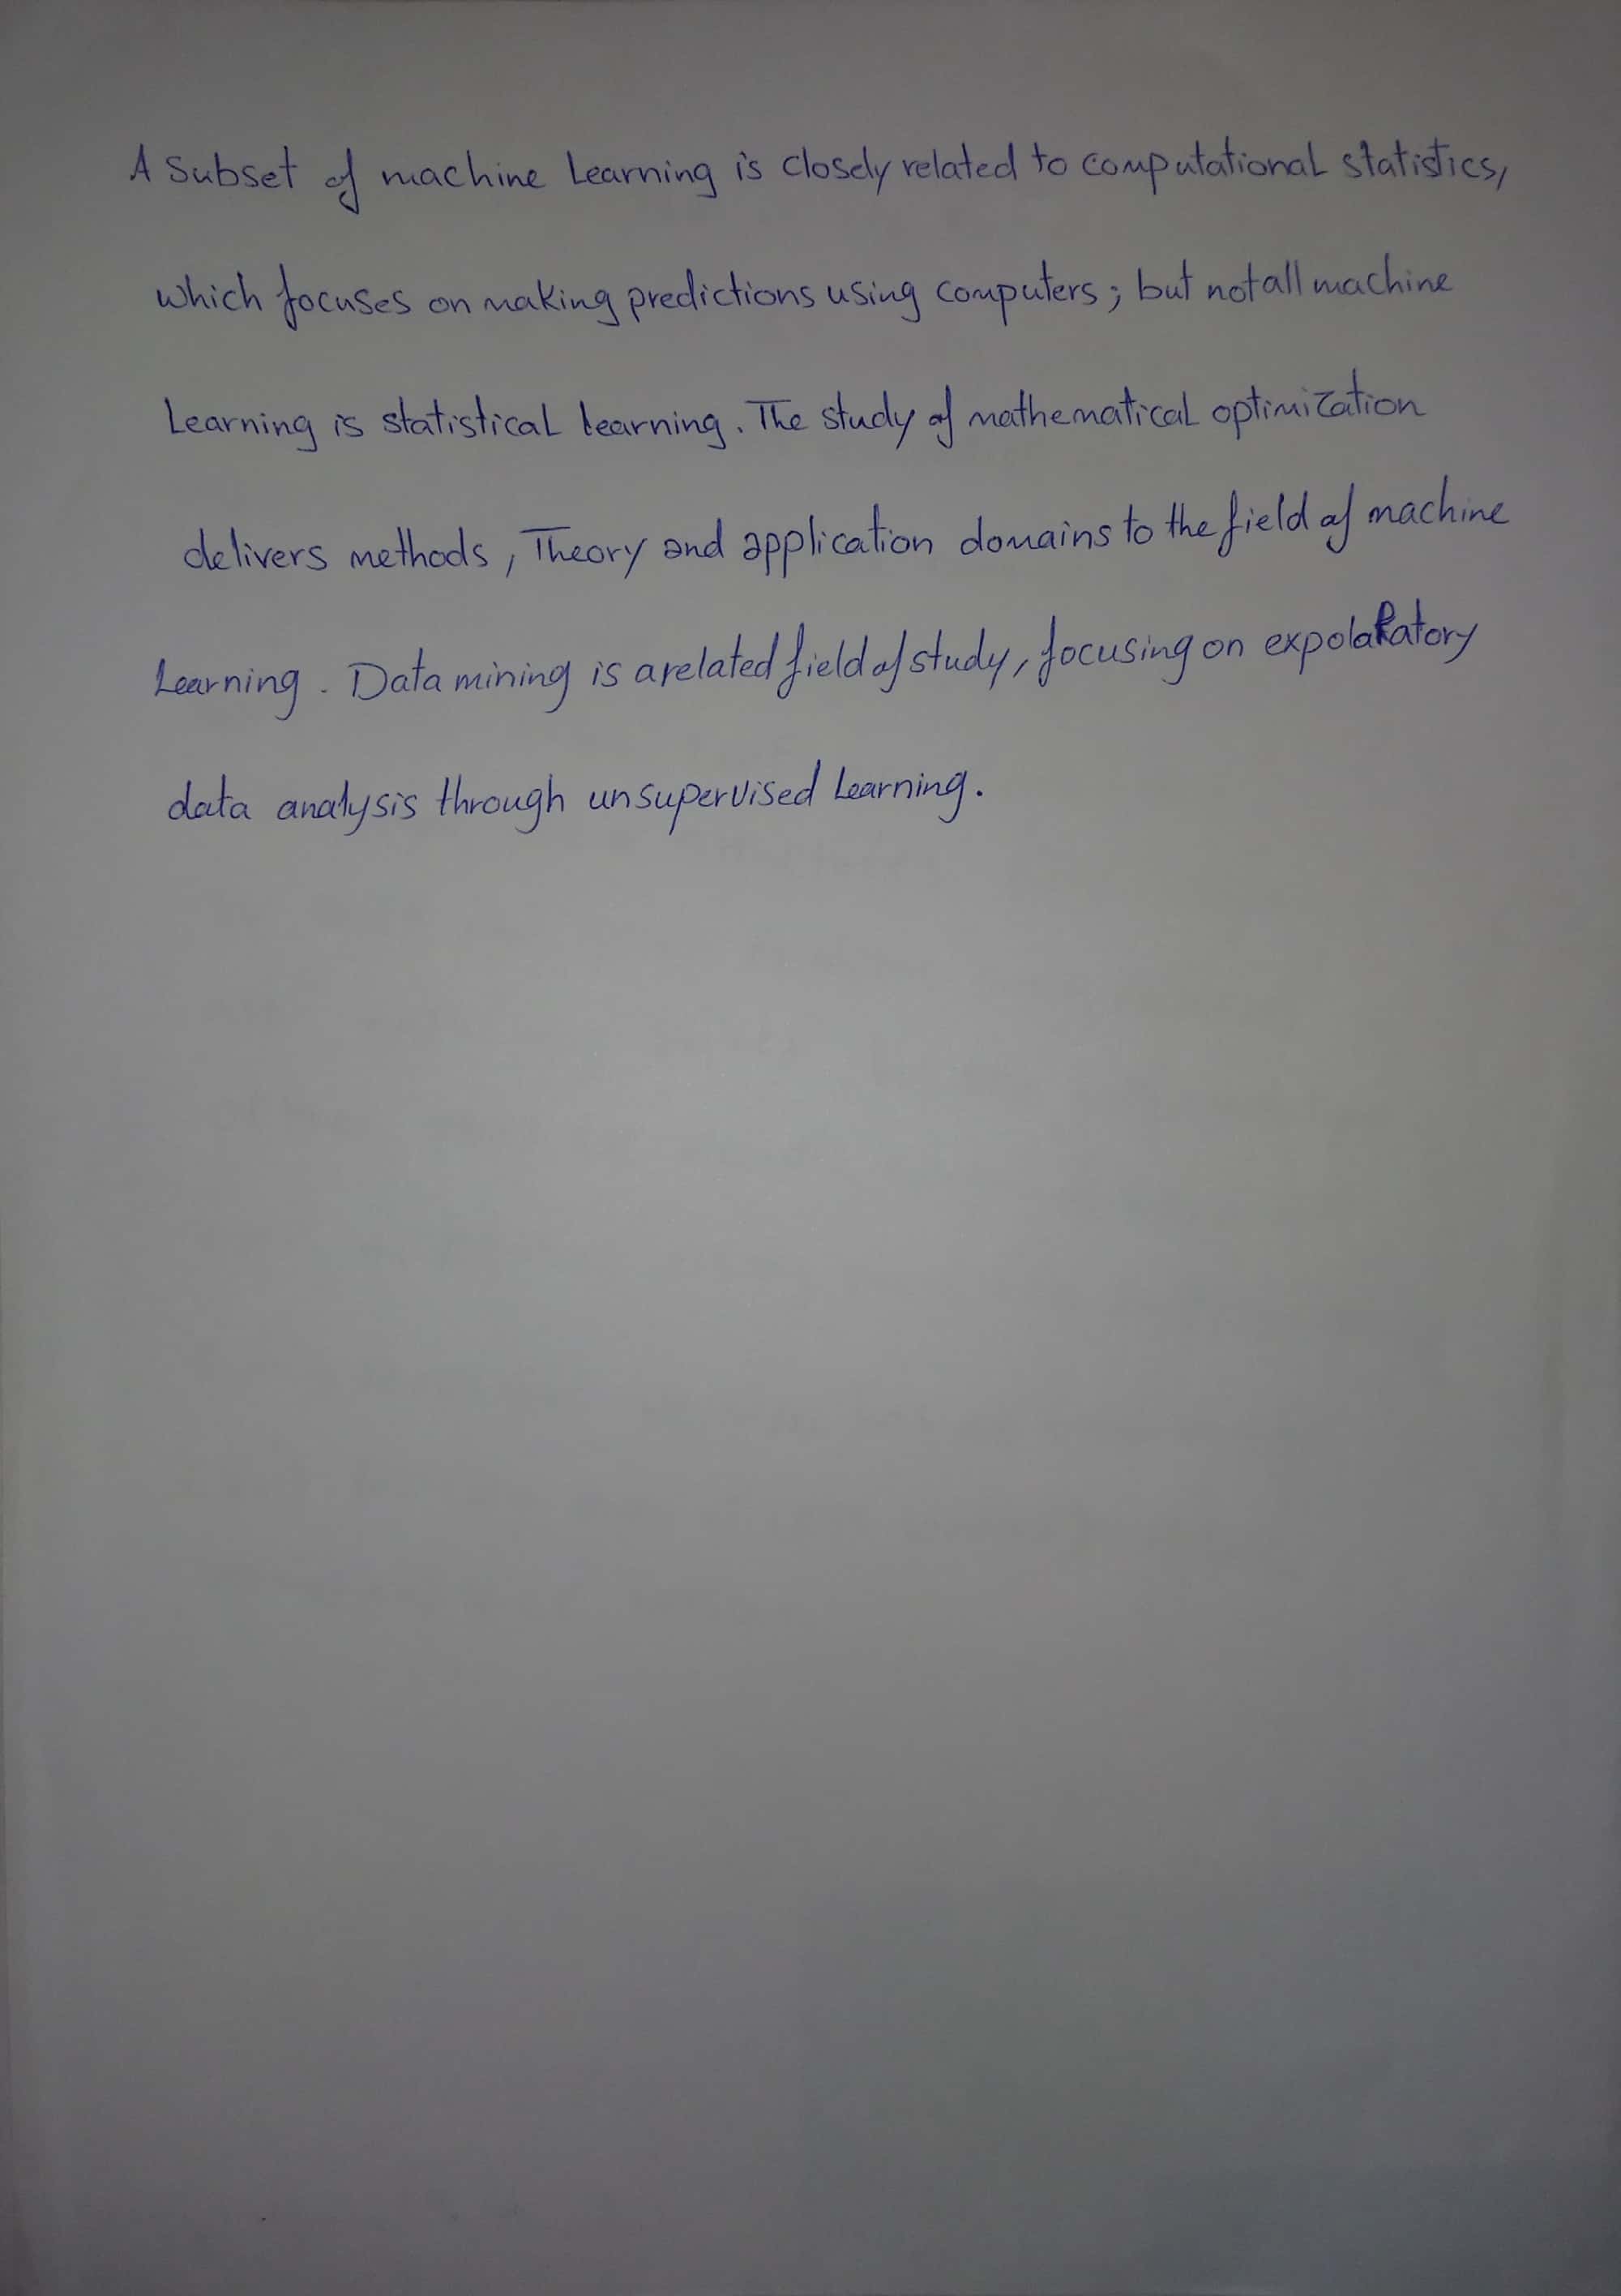 A Subset of machine Learning is closely related to computational statistics,
which focuses on making predictions using computers; but not all machine
Learning is statistical learning. The study of mathematical optimization
delivers methods, Theory and application domains to the field of machine
Learning. Data mining is a related field of study, focusing on expolaratory
data analysis through unsupervised Learning.